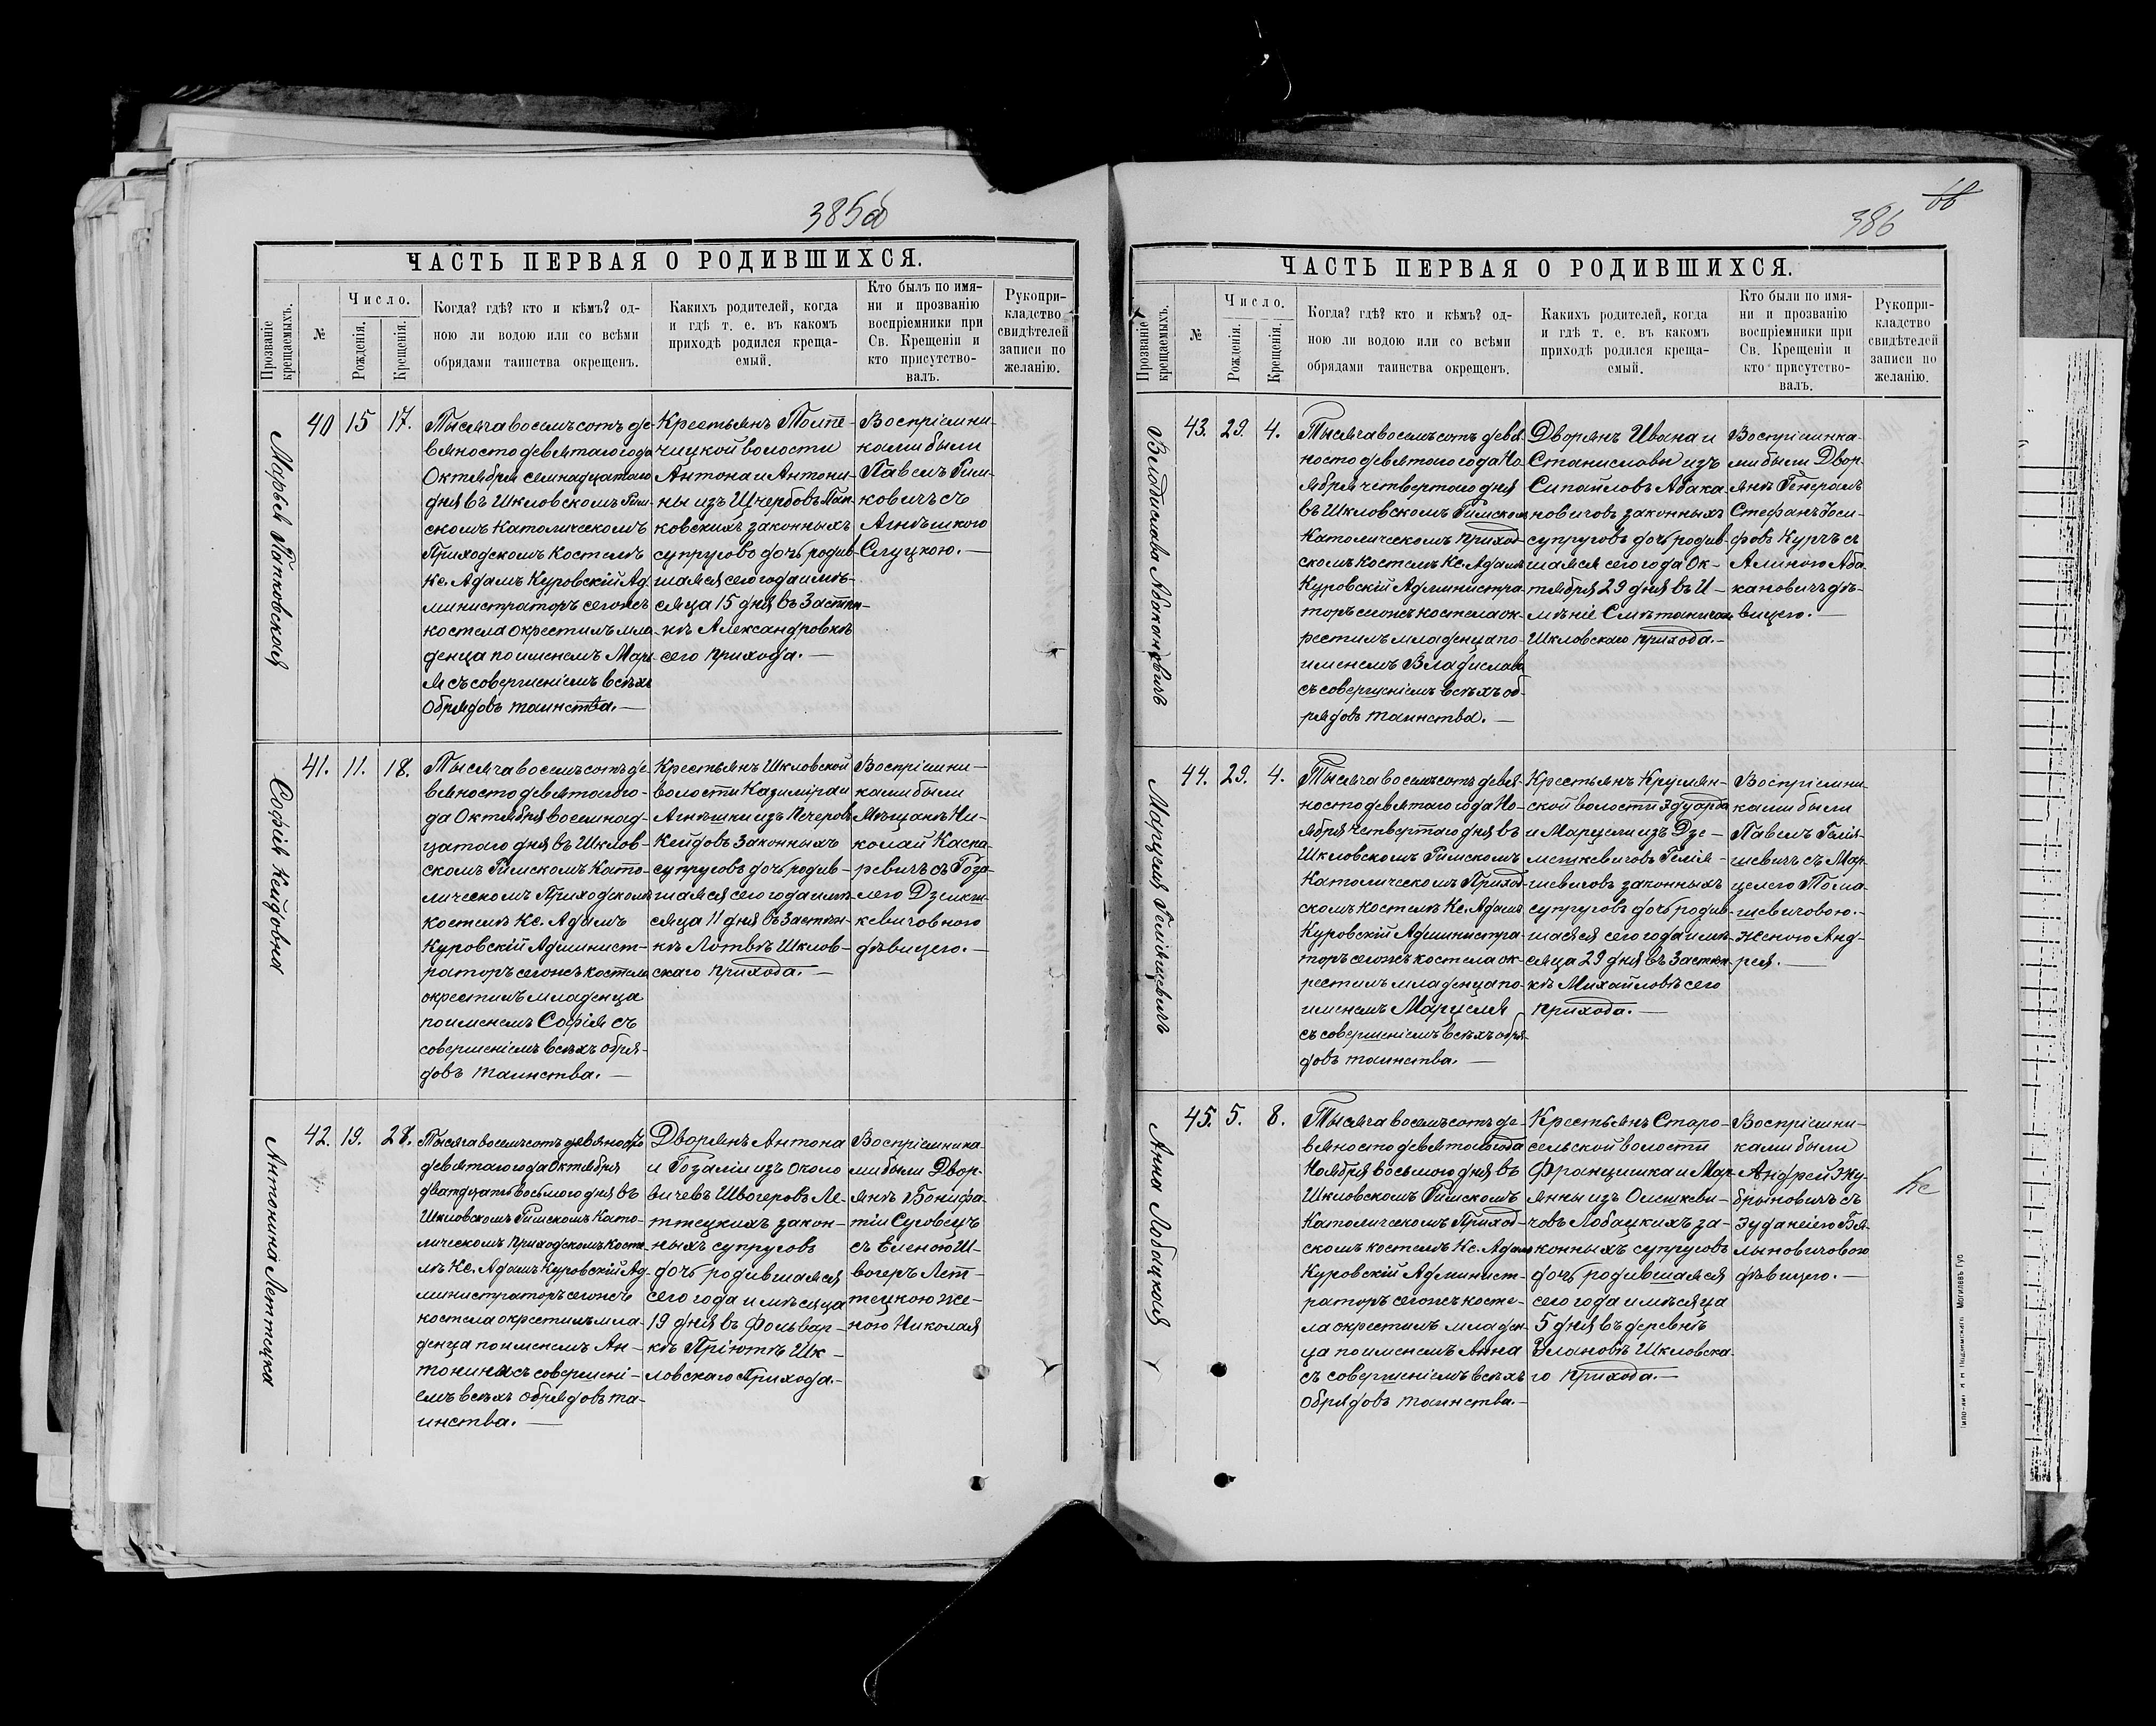 385об
ЧАСТЬ ПЕРВАЯ О РОДИВШИХСЯ.
Прозваніе крещаемыхъ.
№
Число.
Рожденія.
Крещенія.
Когда? гдѣ? кто и кѣмъ? од-
ною ли водою или со всѣми
обрядами таинства окрещенъ.
Какихъ родителей, когда
и гдѣ т. е. въ какомъ
приходѣ родился креща-
емый.
Кто былъ по имя-
ни и прозванію
воспріемники при
Св. Крещеніи и
кто присутство-
валъ.
Рукопри-
кладство
свидѣтелей
записи по
желанію.
Марья Панковская
40
15
17.
Тысяча восемьсотъ де-
вяносто девятаго года
Октября семнадцатаго
дня въ Шкловскомъ Рим-
скомъ Католическомъ
Приходскомъ Костелѣ
Кс. Адамъ Куровскій Ад-
министраторъ сегожъ
костела окрестилъ мла-
денца по именемъ Мари
я съ совершеніемъ всѣхъ
обрядовъ таинства. —
Крестьянъ Толпе-
чицкой волости
Антона и Антони-
ны изъ Щербовъ Пан-
ковскихъ законныхъ
супруговъ дочь родив-
шаяся сего года и мѣ-
сяца 15 дня въ Застѣн-
кѣ Александровкѣ
сего прихода. —
Воспріемни-
ками были
Павелъ Рим-
ковичъ съ
Агнѣшкою
Слуцкою. —
Софія Кейдовна
41.
11.
18.
Тысяча восемьсотъ де-
вяносто девятаго го-
да Октября восемнад-
цатаго дня въ Шклов-
скомъ Римскомъ Като-
лическомъ Приходскомъ
костелѣ Кс. Адамъ
Куровскій Админист-
раторъ сегожъ костела
окрестилъ младенца
по именемъ Софія съ
совершеніемъ всѣхъ обря-
довъ таинства. —
Крестьянъ Шкловской
волости Казиміра и
Агнѣшки изъ Печеровъ
Кейдовъ законныхъ
супруговъ дочь родив-
шаяся сего года и мѣ-
сяца 11 дня въ Застѣн-
кѣ Лотвѣ Шклов-
скаго прихода. —
Воспріемни-
ками были
Мѣщанъ Ни-
колай Каспа-
ревичъ съ Роза-
лею Дземит-
кевичовною
дѣвицею. —
Антонина Леттоцка
42.
19.
28.
Тысяча восемьсотъ девяносто
девятаго года Октября
двадцать восьмого дня въ
Шкловскомъ Римскомъ Като-
лическомъ Приходскомъ Косте-
лѣ Кс. Адамъ Куровскій Ад-
министраторъ сегожъ
костела окрестилъ мла-
денца по именемъ Ан-
тонина съ совершені-
емъ всѣхъ обрядовъ та-
инства. —
Дворянъ Антона
и Розаліи изъ Около
вичевъ Швогеровъ Ле-
ттецкихъ закон-
ныхъ супруговъ
дочь родившаяся
сего года и мѣсяца
19 дня въ Фольвар-
кѣ Пріютѣ Шк-
ловскаго Прихода.-
Воспріемника-
ми были Двор-
янѣ Бонифа-
тій Суговецъ
съ Еленою Ш-
вогеръ Лет-
тецкою же-
ною Николая
386
ЧАСТЬ ПЕРВАЯ О РОДИВШИХСЯ.
Прозваніе крещаемыхъ.
№
Число.
Рожденія.
Крещенія.
Когда? гдѣ? кто и кѣмъ? од-
ною ли водою или со всѣми
обрядами таинства окрещенъ.
Какихъ родителей, когда
и гдѣ т. е. въ какомъ
приходѣ родился креща-
емый.
Кто были по имя-
ни и прозванію
воспріемники при
Св. Крещеніи и
кто присутство-
валъ.
Рукопри-
кладство
свидѣтелей
записи по
желанію.
Владислава Абакановичъ
43.
29.
4.
Тысяча восемьсотъ девя-
носто девятаго года Но-
ября четвертаго дня
въ Шкловскомъ Римском
Католическомъ приход-
скомъ костелѣ Кс. Адамъ
Куровскій Администра-
торъ сегожъ костела ок-
рестилъ младенца по-
именемъ Владислава
съ совершеніемъ всѣхъ об-
рядовъ таинства. —
Дворянъ Ивана и
Станиславы изъ
Сипайловъ Абака-
новичовъ законныхъ
супруговъ дочь родив-
шаяся сего года Ок-
тября 29 дня въ И-
мѣніе Смѣтаничахъ
Шкловскаго прихода.—
Воспріемника-
ми были Двор-
янѣ Генералъ
Стефанъ Іоси-
фовъ Курчъ съ
Алиною Аба-
кановичъ дѣ-
вицею. —
Марцеля Геліяшевичъ
44.
29.
4.
Тысяча восемьсотъ девя-
носто девятаго года Но-
ября четвертаго дня въ
Шкловскомъ Римскомъ
Католическомъ Приход-
скомъ костелѣ Кс. Адамъ
Куровскій Администра-
торъ сегожъ костела ок-
рестилъ младенца по-
именемъ Марцеля
съ совершеніемъ всѣхъ обря-
довъ таинства. —
Крестьянъ Круглян-
ской волости Эдуарда
и Марцели изъ Дзе-
мешкевичовъ Гелія-
шевичовъ законныхъ
супруговъ дочь родив-
шаяся сего года и мѣ-
сяца 29 дня въ Застѣн-
кѣ Михайловѣ сего
прихода. —
Воспріемни-
ками были
Павелъ Гелія-
шевичъ съ Мар-
целею Тома-
шевичовою-
женою Анд-
рея. —
Анна Лобацкая
45.
5.
8.
Тысяча восемьсотъ де-
вяносто девятаго года
Ноября восьмого дня въ
Шкловскомъ Римскомъ
Католическомъ Приход-
скомъ костелѣ Кс. Адамъ
Куровскій Админист-
раторъ сегожъ косте-
ла окрестилъ младен-
ца по именемъ Анна
съ совершеніемъ всѣхъ
обрядовъ таинства.—
Крестьянъ Старо-
сельской волости
Францишка и Мар-
янны изъ Олешкеви-
човъ Лобацкихъ за-
конныхъ супруговъ
дочь родившаяся
сего года и мѣсяца
5 дня въ деревнѣ
Улановѣ Шкловска-
го прихода.—
Воспріемни-
ками были
Андрей Жу-
брыновичъ съ
Зуданеіею Бя-
лыновичовою
дѣвицею. —